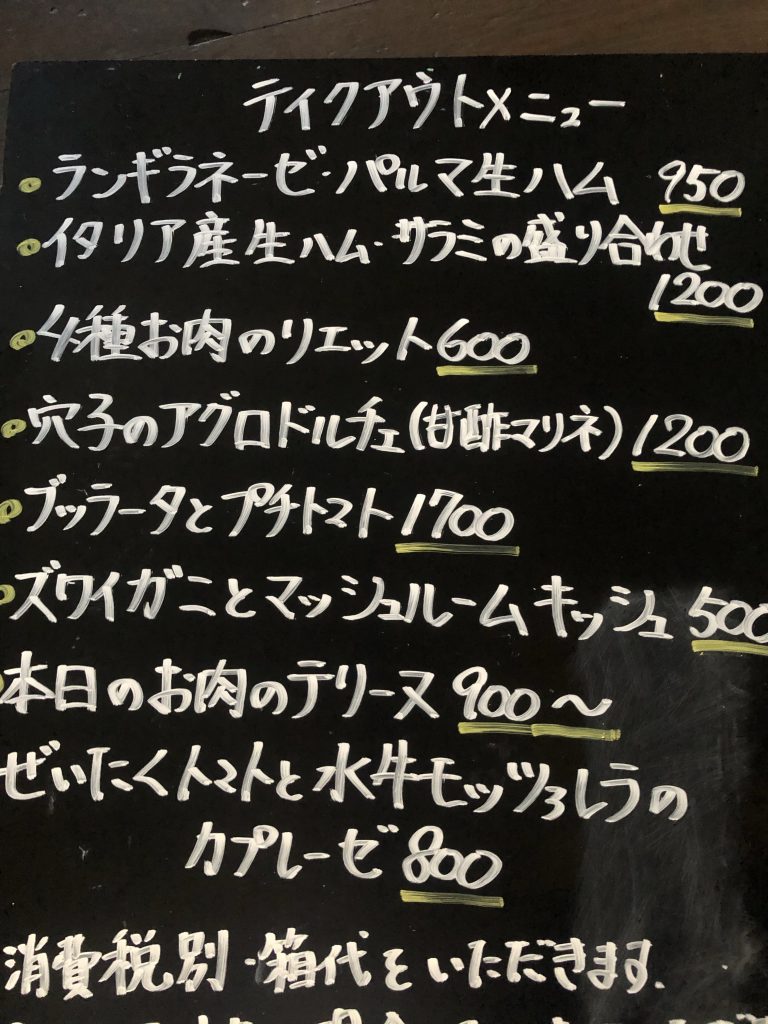 テイクアウトメニュー
• ランギラネーゼ・パルマ生ハム 950
• イタリア産生ハム・サラミの盛り合わせ
1200
• 4種お肉のリエット 600
• 穴子のアグロドルチェ(甘酢マリネ) 1200
• ブッラータとプチトマト 1700
• ズワイガニとマッシュルームキッシュ 500
• 本日のお肉のテリーヌ 900〜
ぜいたくトマトと水牛モッツァレラの
カプレーゼ 800
消費税別・箱代をいただきます.